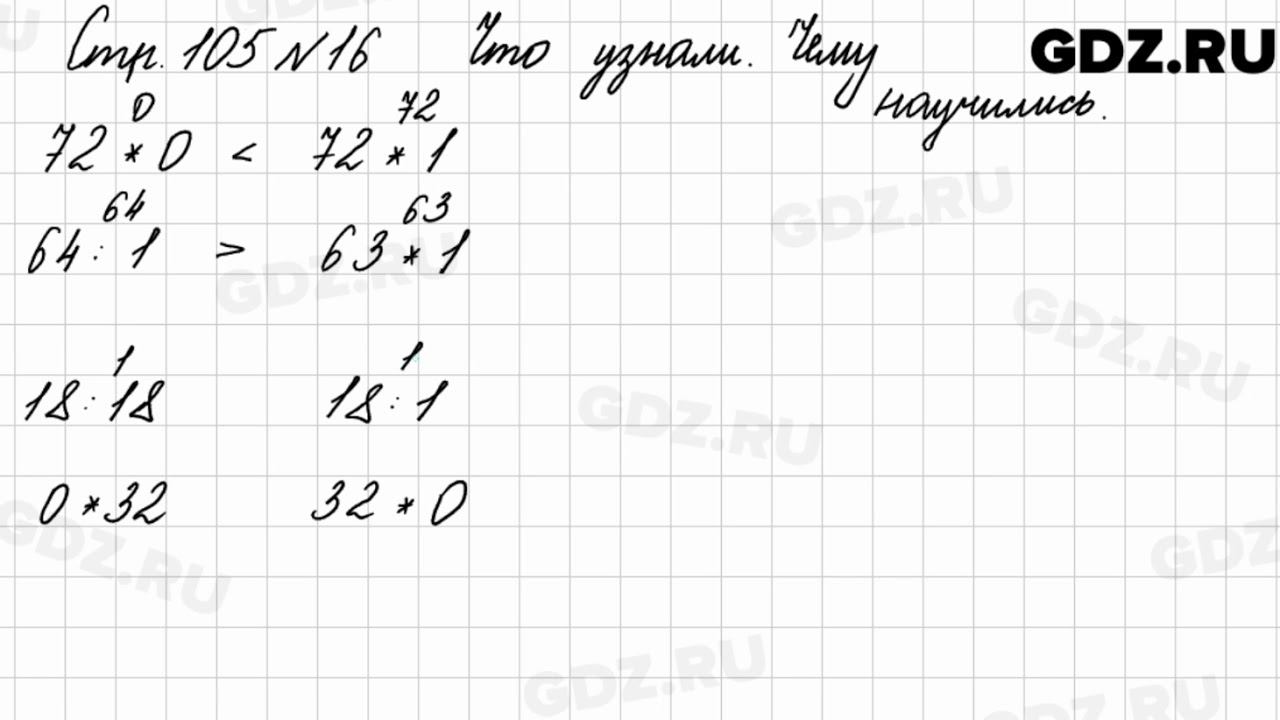 Стр. 105 №16 Что узнали. Чему научились.
GDZ.RU
0 72
72 * 0 < 72 * 1
64 63
64 : 1 > 63 * 1
1 1
18 : 18 18 : 1
0 * 32 32 * 0
GDZ.RU
GDZ.RU
GDZ.RU
GDZ.RU
GDZ.RU
GDZ.RU
GDZ.RU
GDZ.RU